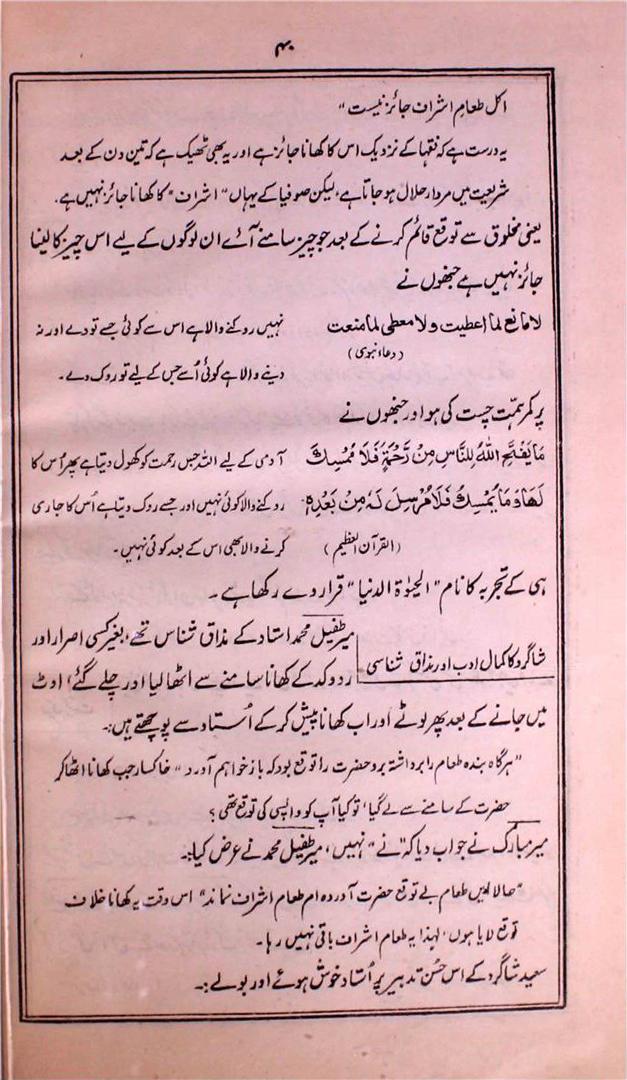 ۴۰
اکل طعامِ اشراف جائز نیست "
یہ درست ہے کہ فقہا کے نزدیک اس کا کھانا جائز ہے اور یہ بھی ٹھیک ہے کہ تین دن کے بعد
شریعت میں مردار حلال ہو جاتا ہے، لیکن صوفیا کے یہاں "اشراف" کا کھانا جائز نہیں ہے۔
یعنی مخلوق سے توقع قائم کرنے کے بعد جو چیز سامنے آئے ان لوگوں کے لیے اس چیز کا لینا
جائز نہیں ہے جنھوں نے
لا مانع لما اعطیت ولا معطی لما منعت نہیں روکنے والا ہے اس سے کوئی جسے تو دے اور نہ
(دعاء نبوی) دینے والا ہے کوئی اُسے جس کے لیے تو روک دے۔
پر کمر ہمّت چست کی ہو اور جنھوں نے
مَا يَفْتَحِ اللّٰهُ لِلنَّاسِ مِنْ رَّحْمَةٍ فَلَا مُمْسِكَ آدمی کے لیے اللہ جس رحمت کو کھول دیتا ہے پھر اُس کا
لَهَا وَمَا يُمْسِكْ فَلَا مُرْسِلَ لَهٗ مِنْ بَعْدِهٖ روکنے والا کوئی نہیں اور جسے روک دیتا ہے اُس کا جاری
(القرآن العظیم) کرنے والا بھی اس کے بعد کوئی نہیں۔
ہی کے تجربہ کا نام "الحیٰوۃ الدنیا" قرار دے رکھا ہے۔
شاگرد کا کمال ادب اور مذاق شناسی
میر طفیل محمد استاد کے مذاق شناس تھے، بغیر کسی اصرار اور
رد و کد کے کھانا سامنے سے اٹھا لیا اور چلے گئے، اوٹ
میں جانے کے بعد پھر لوٹے اور اب کھانا پیش کر کے اُستاد سے پوچھتے ہیں:۔
"ہر گاہ بندہ طعام را برداشتہ برد حضرت را توقع بود کہ باز خواہم آورد" خاکسار جب کھانا اٹھا کر
حضرت کے سامنے سے لے گیا، تو کیا آپ کو واپسی کی توقع تھی؟
میر مبارک نے جواب دیا کہ "نے" نہیں، میر طفیل محمد نے عرض کیا:۔
"حالا ایں طعام بے توقع حضرت آوردہ ام طعام اشراف نماند" اس وقت یہ کھانا خلاف
توقع لایا ہوں، لہٰذا یہ طعام اشراف باقی نہیں رہا۔
سعید شاگرد کے اس حُسن تدبیر پر اُستاد خوش ہوئے اور بولے:۔